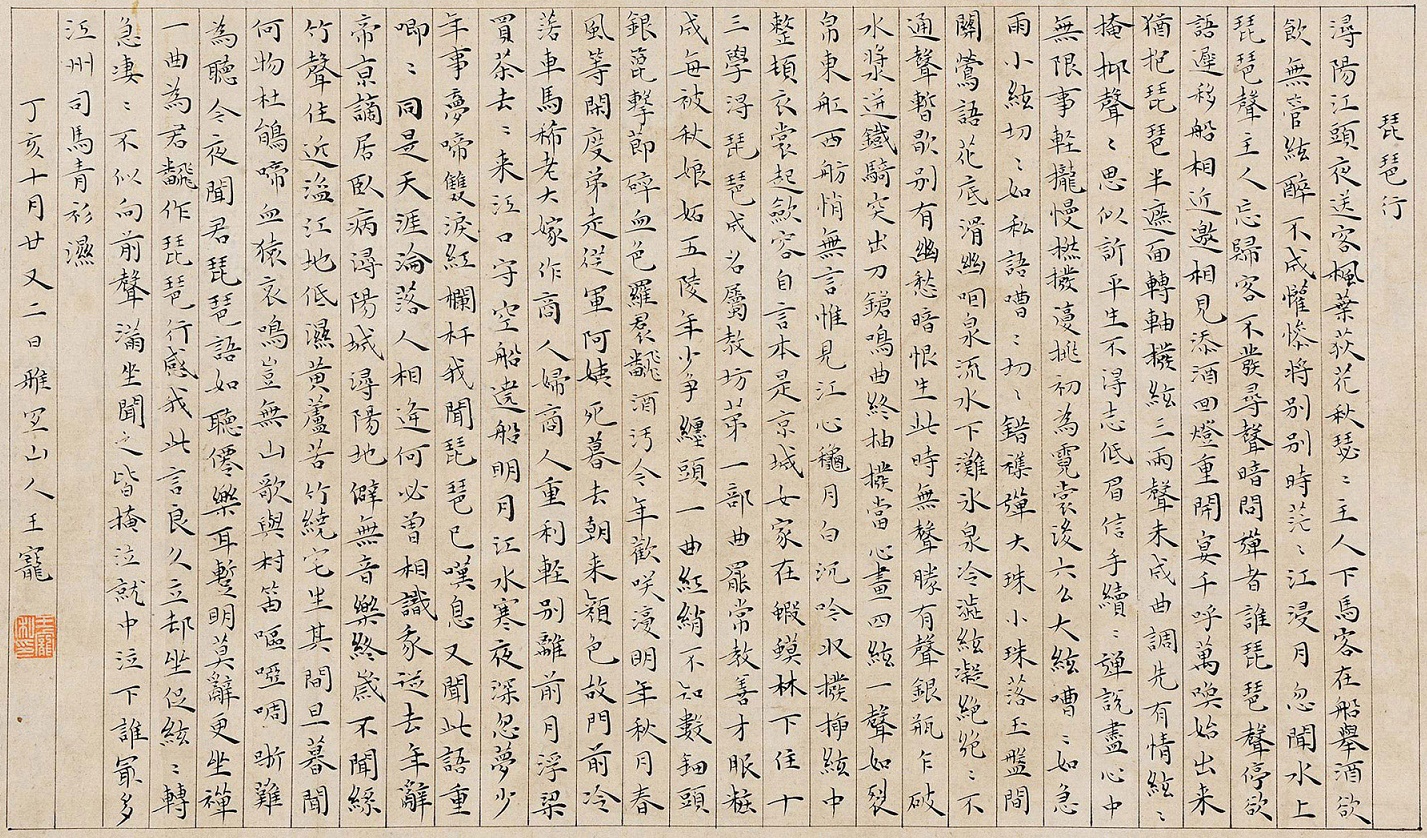 琵琶行
潯陽江頭夜送客楓葉荻花秋瑟〻主人下馬客在船舉酒欲
飲無管絃醉不成懽慘將别别時茫〻江浸月忽聞水上
琵琶聲主人忘歸客不發尋聲暗問彈者誰琵琶聲停欲
語遲移船相近邀相見添酒回燈重開宴千呼萬喚始出来
猶抱琵琶半遮面轉軸撥絃三兩聲未成曲調先有情絃〻
掩抑聲〻思似訴平生不得志低眉信手續〻彈説盡心中
無限事軽攏慢撚撥復挑初為霓裳後六幺大絃嘈〻如急
雨小絃切〻如私語嘈〻切〻錯襍彈大珠小珠落玉盤間
關鶯語花底滑幽咽泉流水下灘水泉冷澁絃凝絶絶〻不
通聲暫歇别有幽愁暗恨生此時無聲勝有聲銀瓶乍破
水漿迸鐵騎突出刀鎗鳴曲終抽撥當心畫四絃一聲如裂
帛東船西舫悄無言惟見江心穐月白沉吟収撥挿絃中
整頓衣裳起斂容自言本是京城女家在蝦蟆林下住十
三學得琵琶成名屬教坊苐一部曲罷常教善才服粧
成每被秋娘妬五陵年少争纏頭一曲紅綃不知數鈿頭
銀篦擊節碎血色羅裙飜酒汚今年歡咲復明年秋月春
風等閑度弟走從軍阿姨死暮去朝来顔色故門前冷
落車馬稀老大嫁作商人婦商人重利軽别離前月浮梁
買茶去〻来江口守空船遶船明月江水寒夜深忽夢少
年事夢啼雙淚紅欄杆我聞琵琶已嘆息又聞此語重
唧〻同是天涯淪落人相逢何必曾相識我從去年辭
帝京謫居臥病潯陽城潯陽地僻無音樂終歲不聞絲
竹聲住近湓江地低濕黄蘆苦竹繞宅生其間旦暮聞
何物杜鵑啼血猿哀鳴豈無山歌與村笛嘔啞啁哳難
為聽今夜聞君琵琶語如聽僊樂耳暫明莫辭更坐彈
一曲為君飜作琵琶行感我此言良久立却坐促絃〻轉
急凄〻不似向前聲滿坐聞之皆掩泣就中泣下誰冣多
江州司馬青衫濕
丁亥十月廿又二日雅宜山人王寵